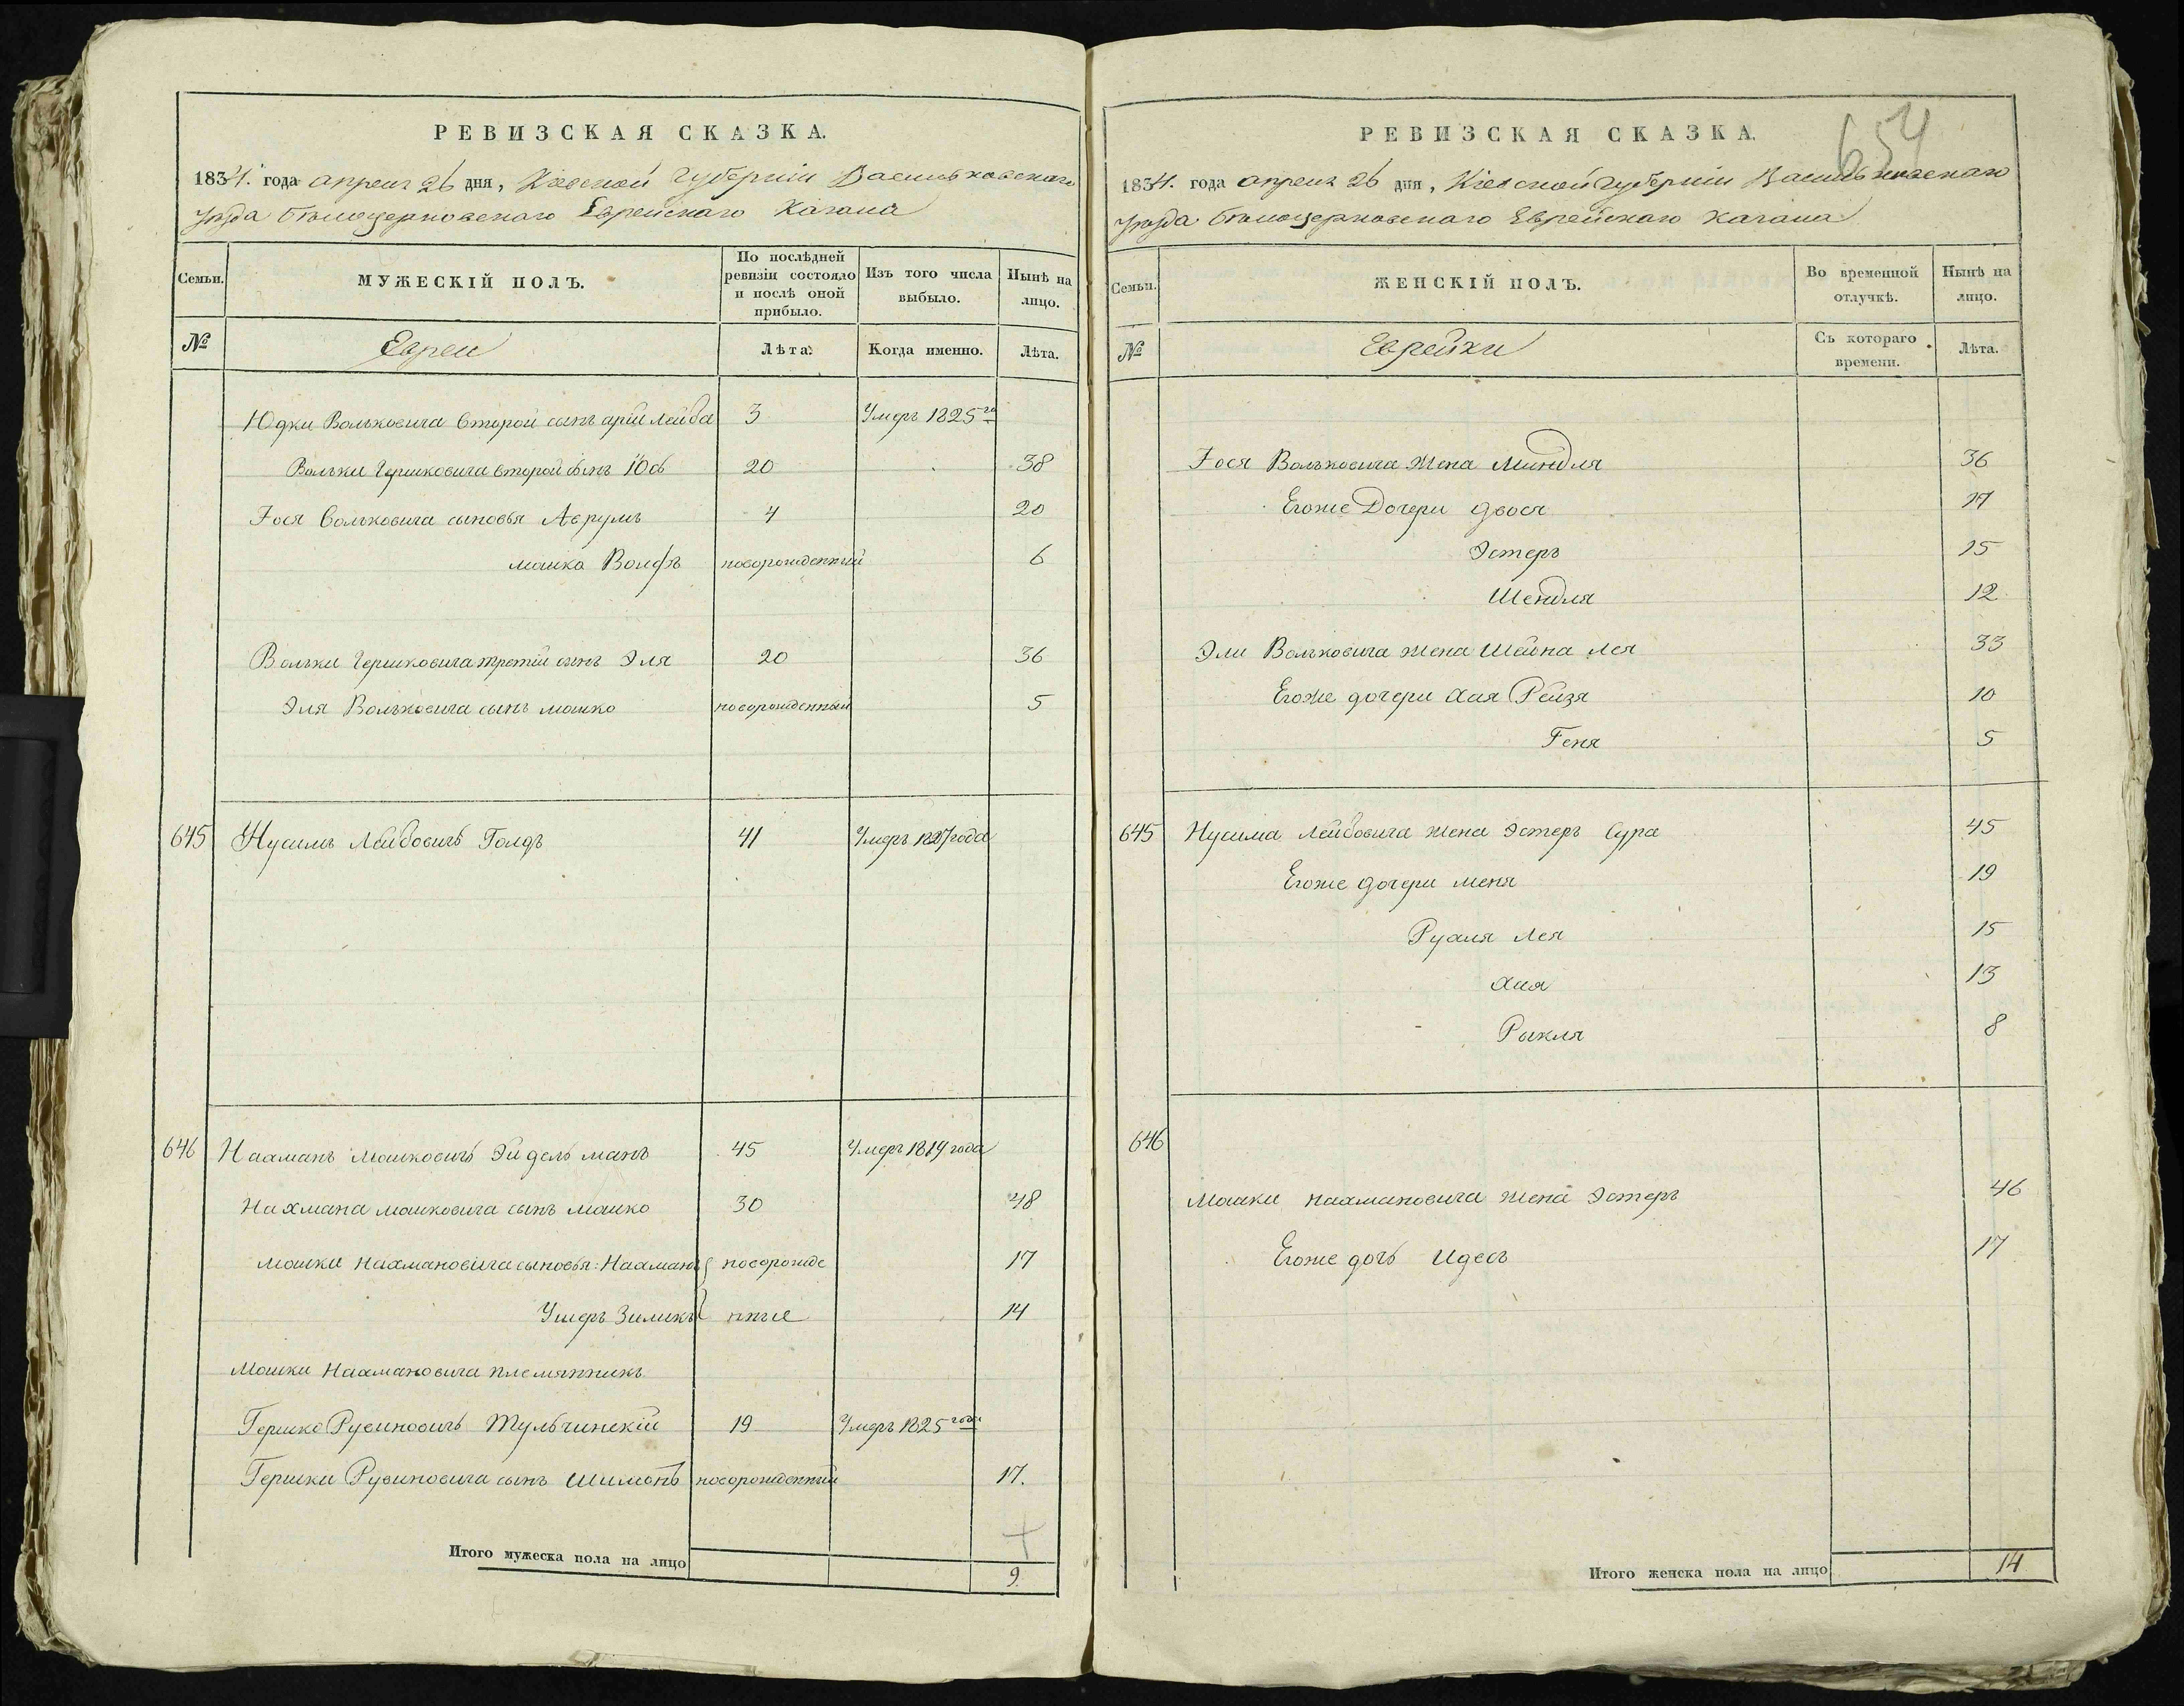 РЕВИЗСКАЯ СКАЗКА.
1834. года апреля 26 дня, Кіевской Губерніи Васильковскаго
уѣзда бѣлоцерковскаго Еврейскаго Кагала
Семьи.
МУЖЕСКІЙ ПОЛЪ.
По послѣдней ревизіи состояло и послѣ оной прибыло.
Изъ того числа выбыло.
Нынѣ на лицо.
№
Евреи
Лѣта.
Когда именно.
Лѣта.
Юдки Вольковича второй сынъ арій лейба 3 Умеръ 1825го
Вольки Гершковича второй сынъ Іось 20 38
Іося Вольковича сыновья Аврумъ 4 20
мошко Волфъ новорожденный 6
Вольки Гершковича третій сынъ Эля 20 36
Эля Вольковича сынъ мошко новорожденный 5
645 Нусимъ Лейбовичъ Голдъ 41 Умеръ 1827 года
646 Нахманъ Мошковичъ Эйдельманъ 45 Умеръ 1819 года
Нахмана мошковича сынъ мошко 30 48
мошки Нахмановича сыновья: Нахманъ новорожде 17
Умеръ Зимикъ нные 14
Мошки Нахмановича племянникъ
Гершко Рувиновичъ Тульчинскій 19 Умеръ 1825 года
Гершки Рувиновича сынъ Шимонъ новорожденный 17.
Итого мужеска пола на лицо 9.
654
РЕВИЗСКАЯ СКАЗКА.
1834. года апреля 26 дня, Кіевской Губерніи Васильковскаго
уѣзда бѣлоцерковскаго Еврейскаго Кагала
Семьи.
ЖЕНСКІЙ ПОЛЪ.
Во временной отлучкѣ.
Нынѣ на лицо.
№
Еврейки
Съ котораго времени.
Лѣта.
Іося Вольковича жена Миндля 36
Егоже Дочери двося 17
Эстеръ 15
Шендля 12
Эли Вольковича жена Шейна Лея 33
Егоже дочери Хая Рейзя 10
Геня 5
645 Нусима Лейбовича жена Эстеръ Сура 45
Егоже дочери меня 19
Рухля Лея 15
Хая 13
Рыкля 8
646
Мошки Нахмановича жена Эстеръ 46
Егоже дочь Идесъ 17
Итого женска пола на лицо 14